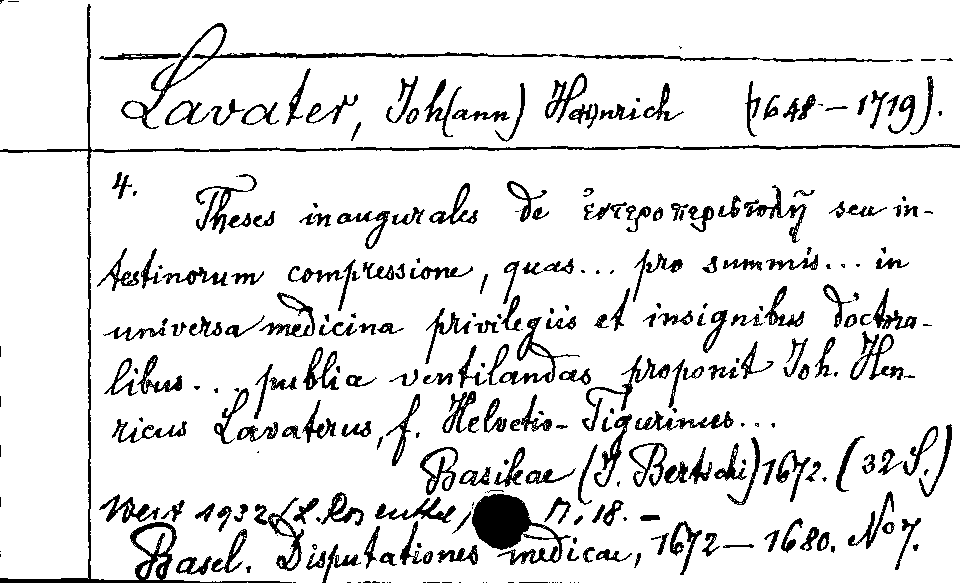 Lavater, Joh(ann) Heinrich (1648 – 1719).
4.
Theses inaugurales de ἐντεροπεριστολῇ seu in-
testinorum compressione, quas... pro summis... in
universa medicina privilegiis et insignibus doctora-
libus... publia ventilandas proponit Joh. Hen-
ricus Lavaterus, f. Helvetio-Tigurinus...
Basileae (J. Bertschi) 1672. (32 S.)
Wert 1932 (L. Rosenthal, M. 18. –
Basel. Disputationes medicae, 1672 – 1680. No 7.